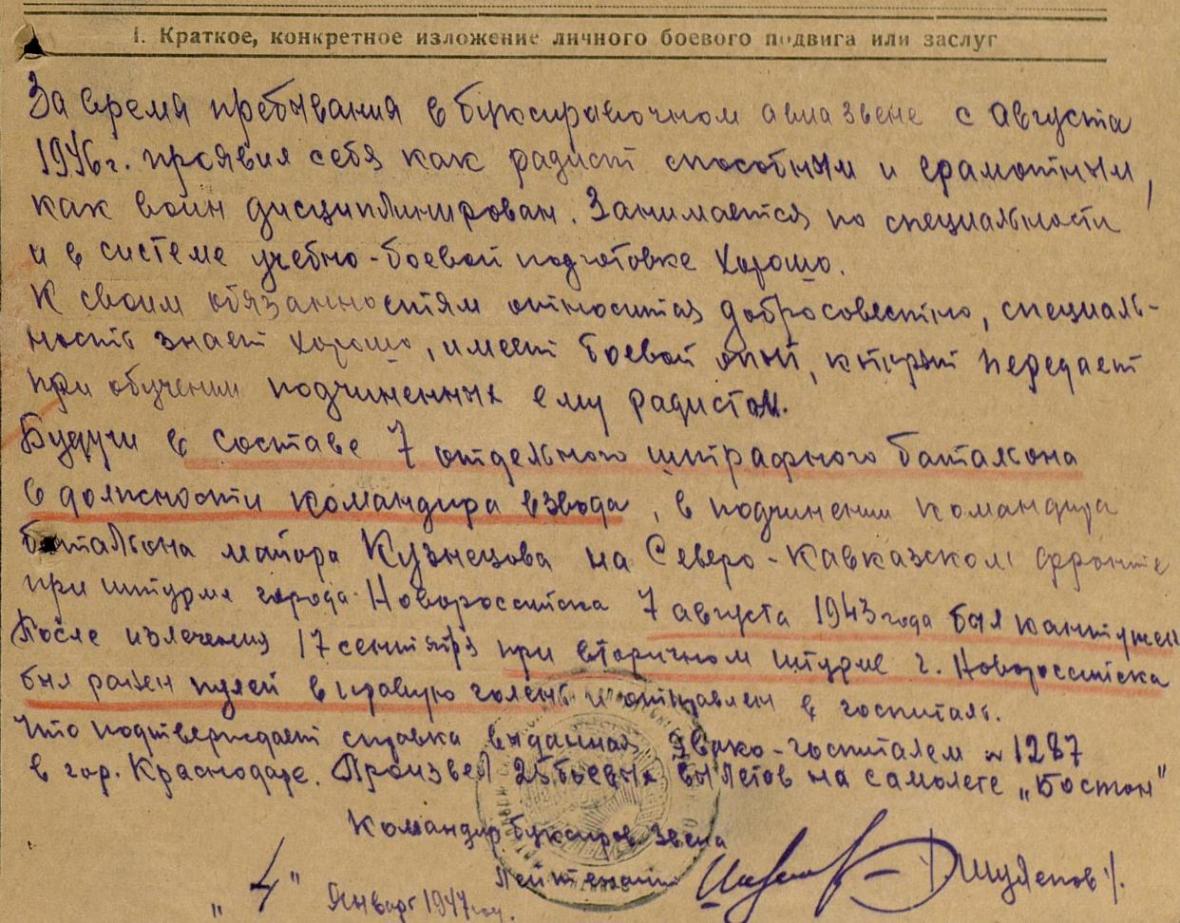 I. Краткое, конкретное изложение личного боевого подвига или заслуг
За время пребывания в буксировочном авиазвене с августа
1946г. проявил себя как радист способным и грамотным,
как воин дисциплинирован. Занимается по специальности
и в системе учебно-боевой подготовке хорошо.
К своим обязанностям относится добросовестно, специаль-
ность знает хорошо, имеет боевой опыт, который передает
при обучении подчиненных ему радистом.
Будучи в составе 7 отдельного штрафного батальона
в должности командира взвода, в подчинении командира
батальона майора Кузнецова на Северо-Кавказском фронте
при штурме города Новороссийска 7 августа 1943 года был контужен
После излечения 17 сентября при вторичном штурме г. Новороссийска
был ранен пулей в правую голень и отправлен в госпиталь.
Что подтверждает справка выданная Эвако-госпиталем № 1287
в гор. Краснодаре. Произвел 25 боевых вылетов на самолете „Бостон"
Командир буксиров звена
Лейтенант Шуляпов/.
„4" Январь 1947 год.